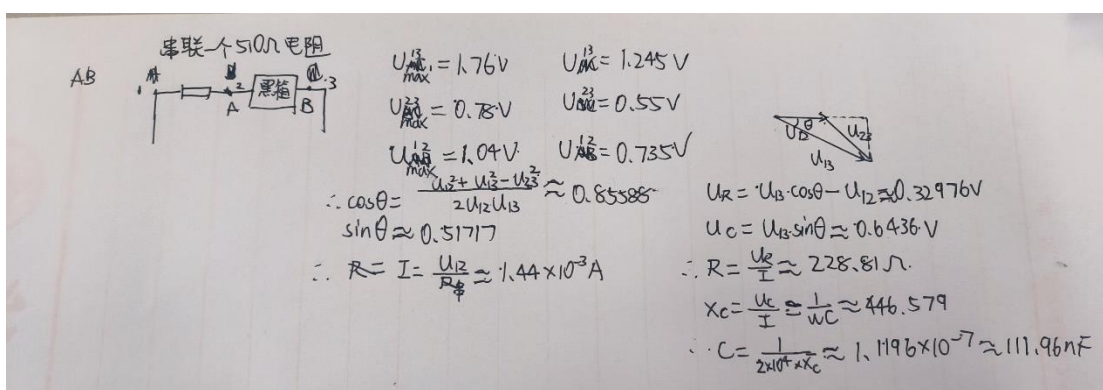 串联一个510Ω电阻
AB
1 2 黑箱 3
A B
U13max = 1.76V U13 = 1.245V
U23max = 0.78V U23 = 0.55V
U12max = 1.04V U12 = 0.735V
∴ cosθ = (U12² + U13² - U23²) / (2U12U13) ≈ 0.85588
sinθ ≈ 0.51717
∴ R = I = U12/R串 ≈ 1.44×10⁻³A
U12 θ U23
U13
UR = U13·cosθ - U12 ≈ 0.32976V
UC = U13·sinθ ≈ 0.6436V
∴ R = UR/I ≈ 228.81Ω
XC = UC/I ≈ 1/WC ≈ 446.579
∴ C = 1/(2×10⁴×XC) ≈ 1.1196×10⁻⁷ ≈ 111.96nF